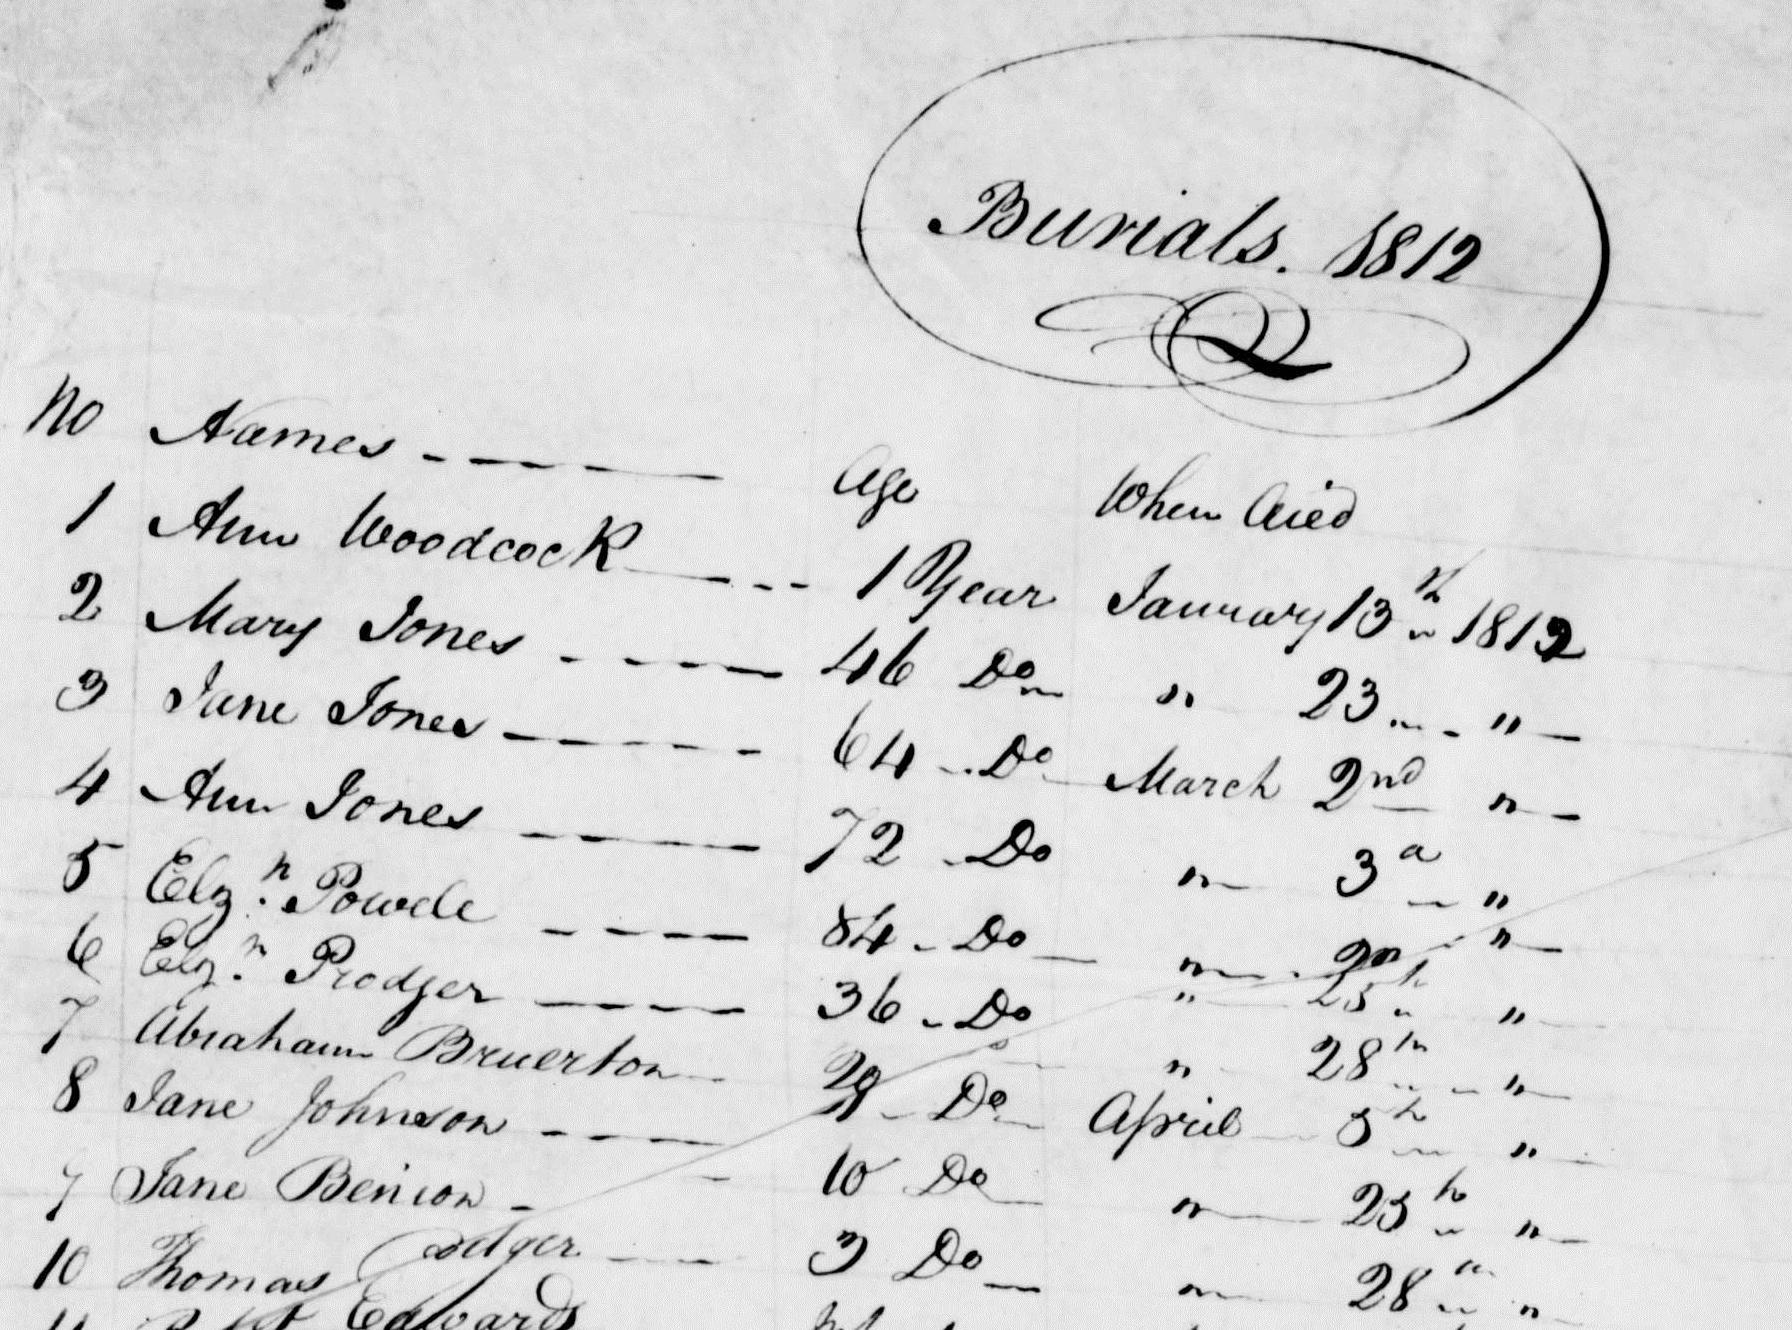 Burials. 1812
No Names Age When died
1 Ann Woodcock 1 Year January 13th 1812
2 Mary Jones 46 Do " 23 "
3 Jane Jones 64 Do March 2nd "
4 Ann Jones 72 Do " 3d "
5 Elzh Powele 84 Do " "
6 Elzh Prodger 36 Do " 25h "
7 Abraham Bruerton Do " 28th "
8 Jane Johnson Do April 5h "
9 Jane Benion 10 Do " 25h "
10 Thomas 3 Do " 28th "
11 Edwards